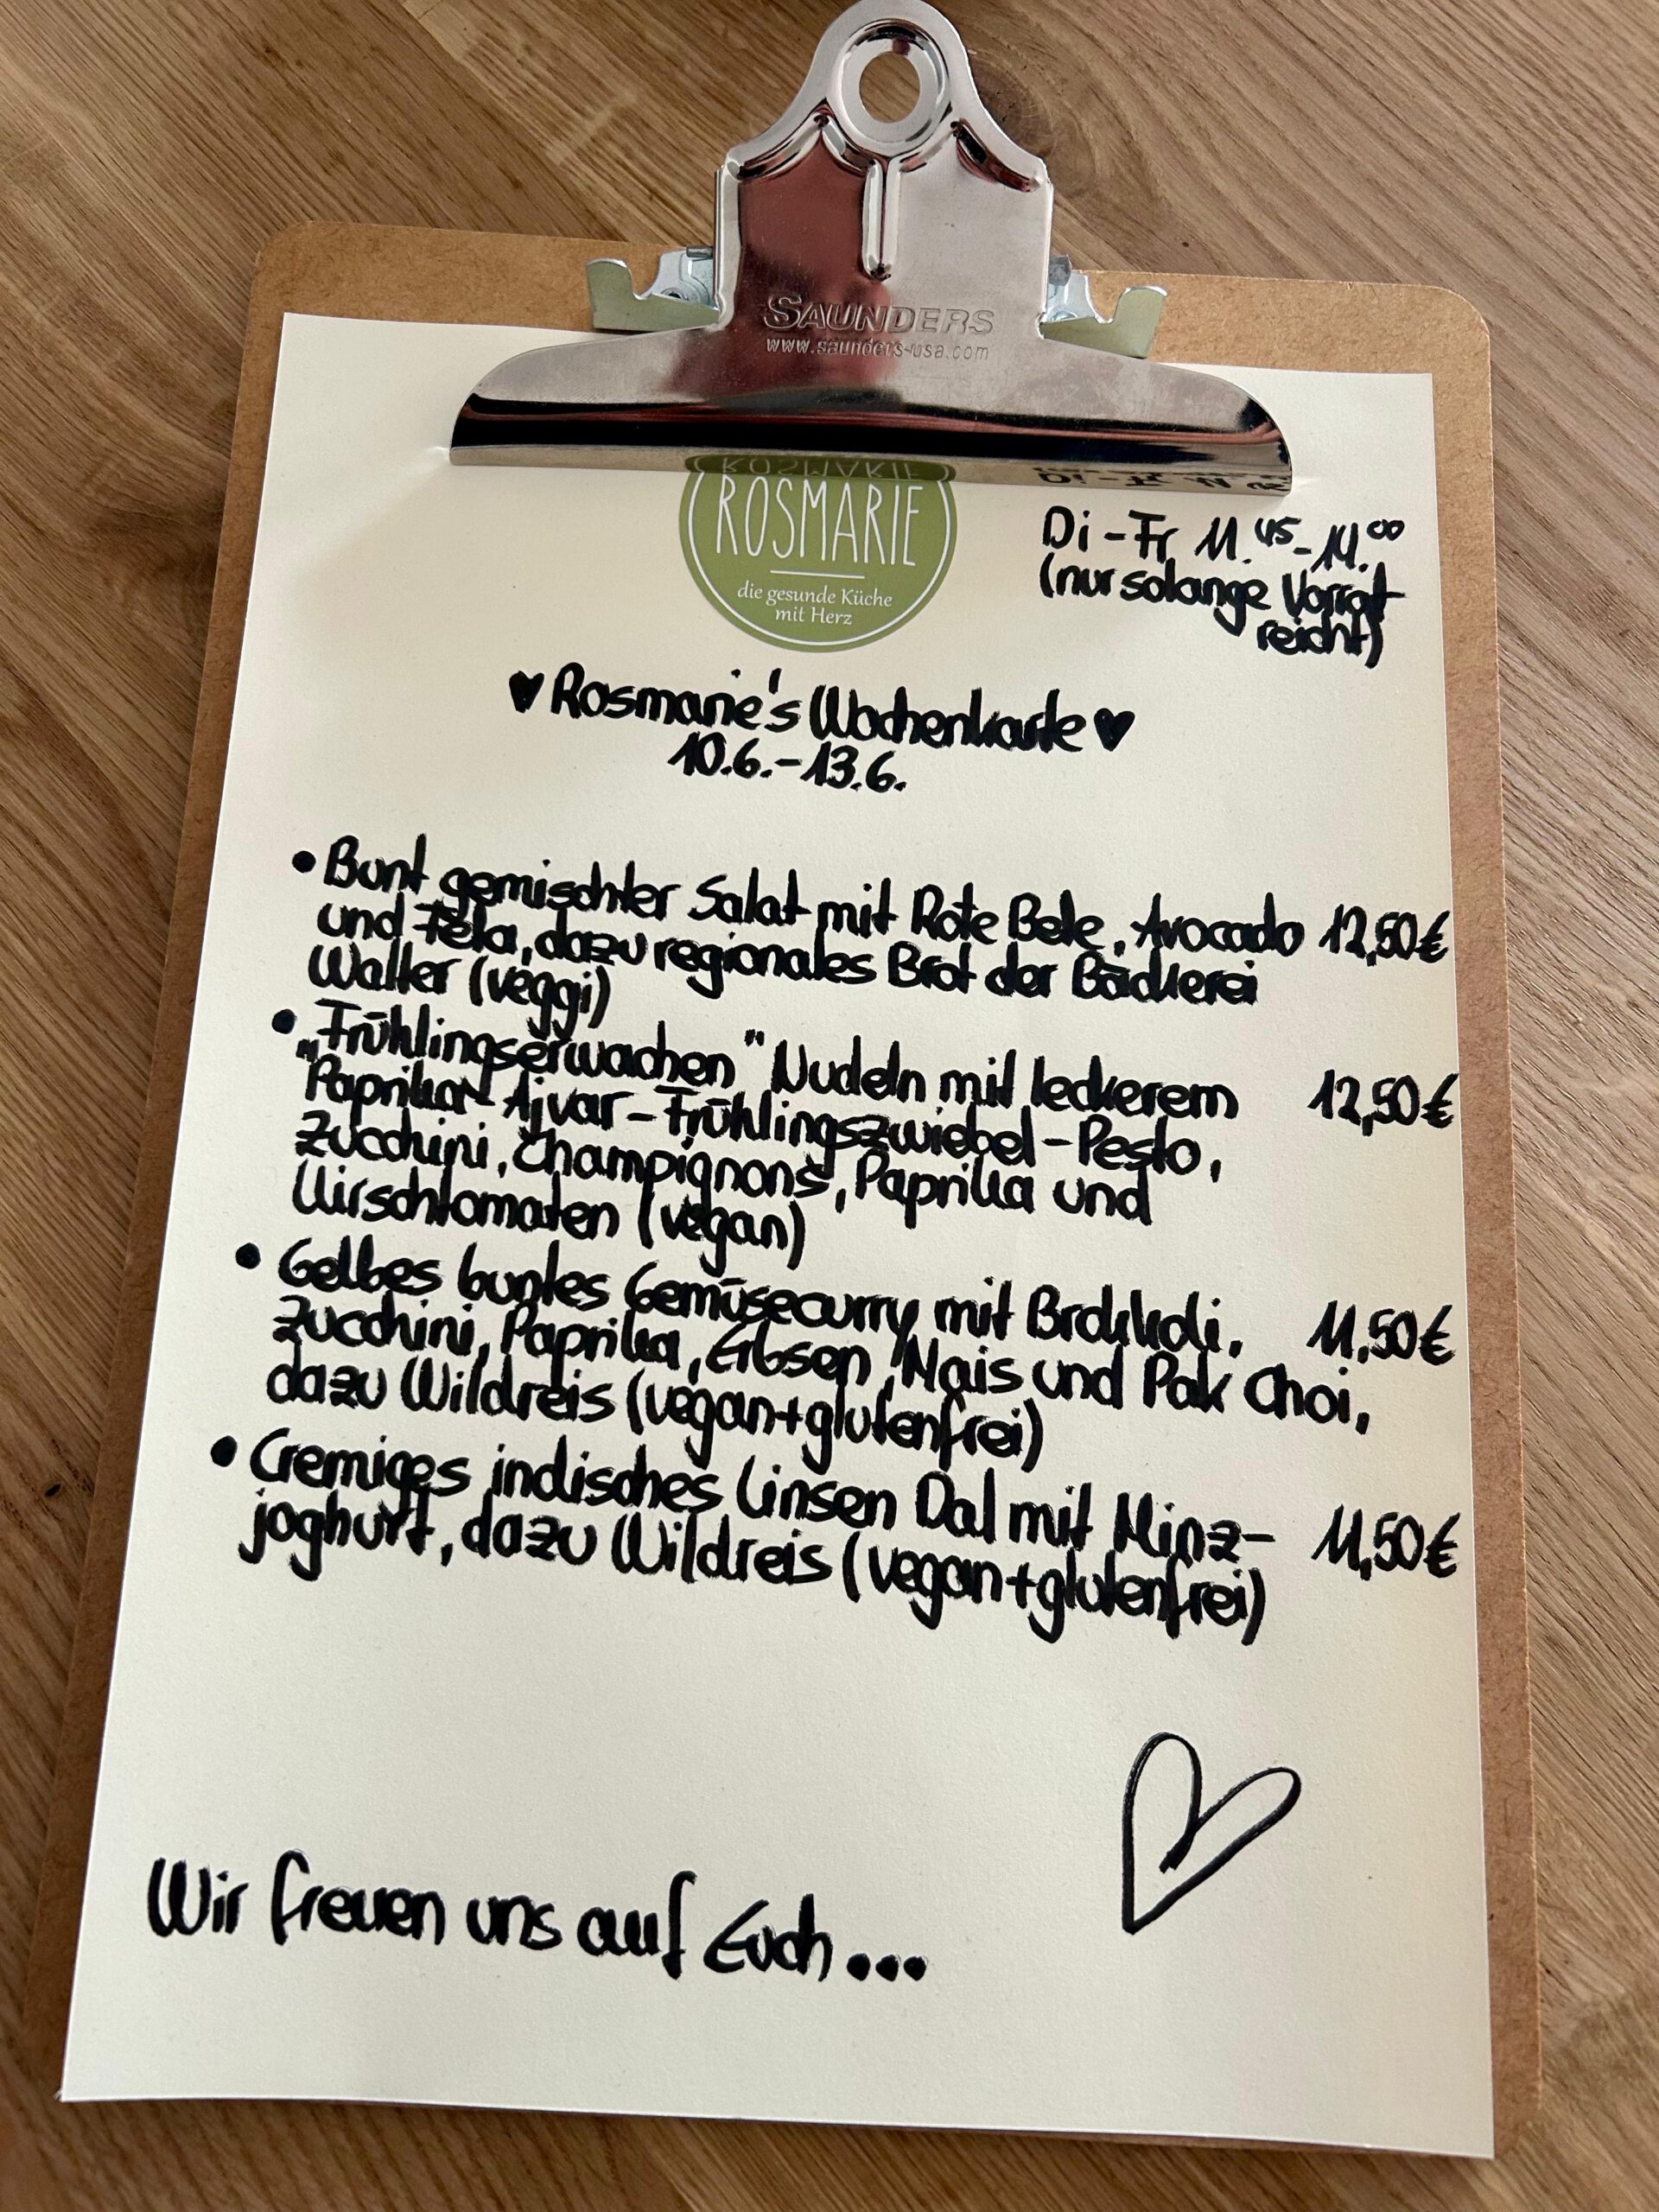 SAUNDERS
www.saunders-usa.com
ROSMARIE
die gesunde Küche
mit Herz
Di - Fr 11.45 - 14.00
(nur solange Vorrat
reicht)
♥ Rosmarie's Wochenkarte ♥
10.6. - 13.6.
• Bunt gemischter Salat mit Rote Bete, Avocado 12,50€
und Feta, dazu regionales Brot der Bäckerei
Walter (veggi)
• „Frühlingserwachen" Nudeln mit leckerem 12,50€
Paprika-Ajvar-Frühlingszwiebel-Pesto,
Zucchini, Champignons, Paprika und
Kirschtomaten (vegan)
• Gelbes buntes Gemüsecurry mit Brokkoli, 11,50€
Zucchini, Paprika, Erbsen, Mais und Pak Choi,
dazu Wildreis (vegan+glutenfrei)
• Cremiges indisches Linsen Dal mit Minz- 11,50€
joghurt, dazu Wildreis (vegan+glutenfrei)
Wir freuen uns auf Euch...